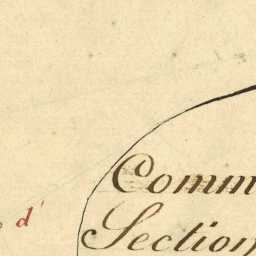 Comm
d'
Section